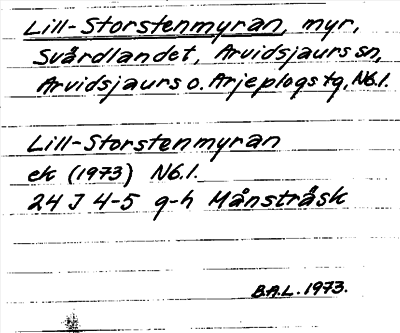 Lill-Storstenmyran, myr,
Svärdlandet, Arvidsjaurs sn,
Arvidsjaurs o. Arjeplogs tg, Nb.l.
Lill-Storstenmyran
ek (1973) Nb.l.
24 J 4-5 g-h Månsträsk
B.A.L. 1973.